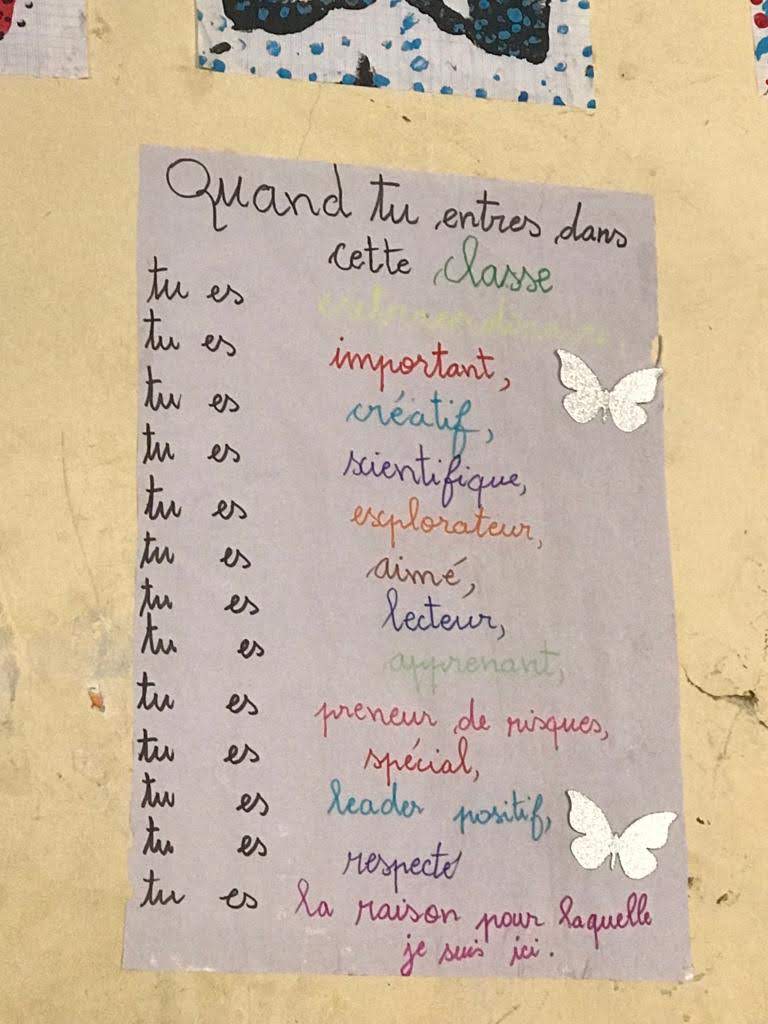 Quand tu entres dans
cette classe
tu es
tu es important,
tu es créatif,
tu es scientifique,
tu es explorateur,
tu es aimé,
tu es lecteur,
tu es apprenant,
tu es preneur de risques,
tu es spécial,
tu es leader positif,
tu es respecté
tu es la raison pour laquelle
je suis ici.